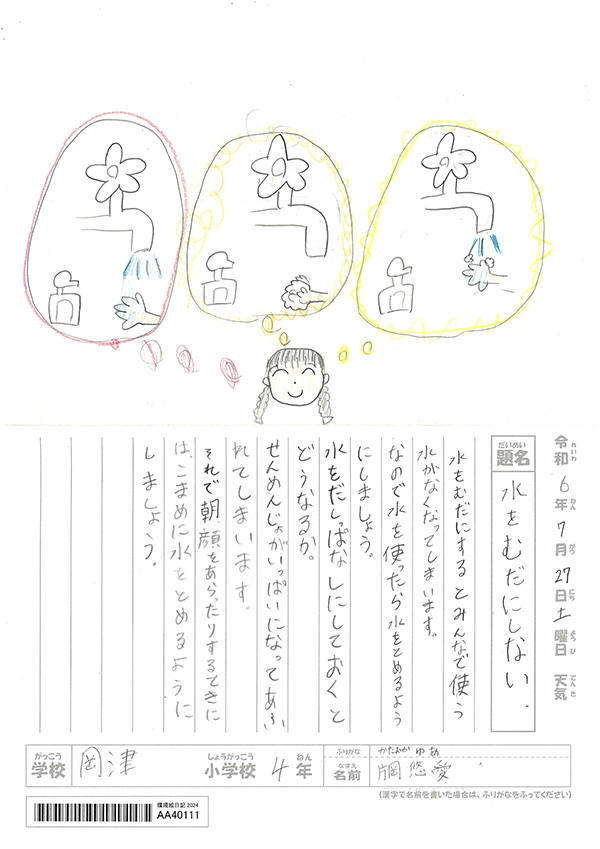 令和6年7月27日土曜日 天気
れいわ ねん がつ にち ようび てんき
だいめい
題名
水をむだにしない.
水をむだにするとみんなで使う
水がなくなってしまいます。
なので水を使ったら水をとめるよう
にしましょう。
水をだしっぱなしにしておくと
どうなるか。
せんめんじょがいっぱいになってあふ
れてしまいます。
それで朝、顔をあらったりするときに
は、こまめに水をとめるように
しましょう。
がっこう しょうがっこう ねん ふりがな かたおか ゆあ
学校 岡津 小学校 4年 なまえ 名前 片岡 悠愛
(漢字で名前を書いた場合は、ふりがなをふってください)
環境絵日記 2024
AA40111